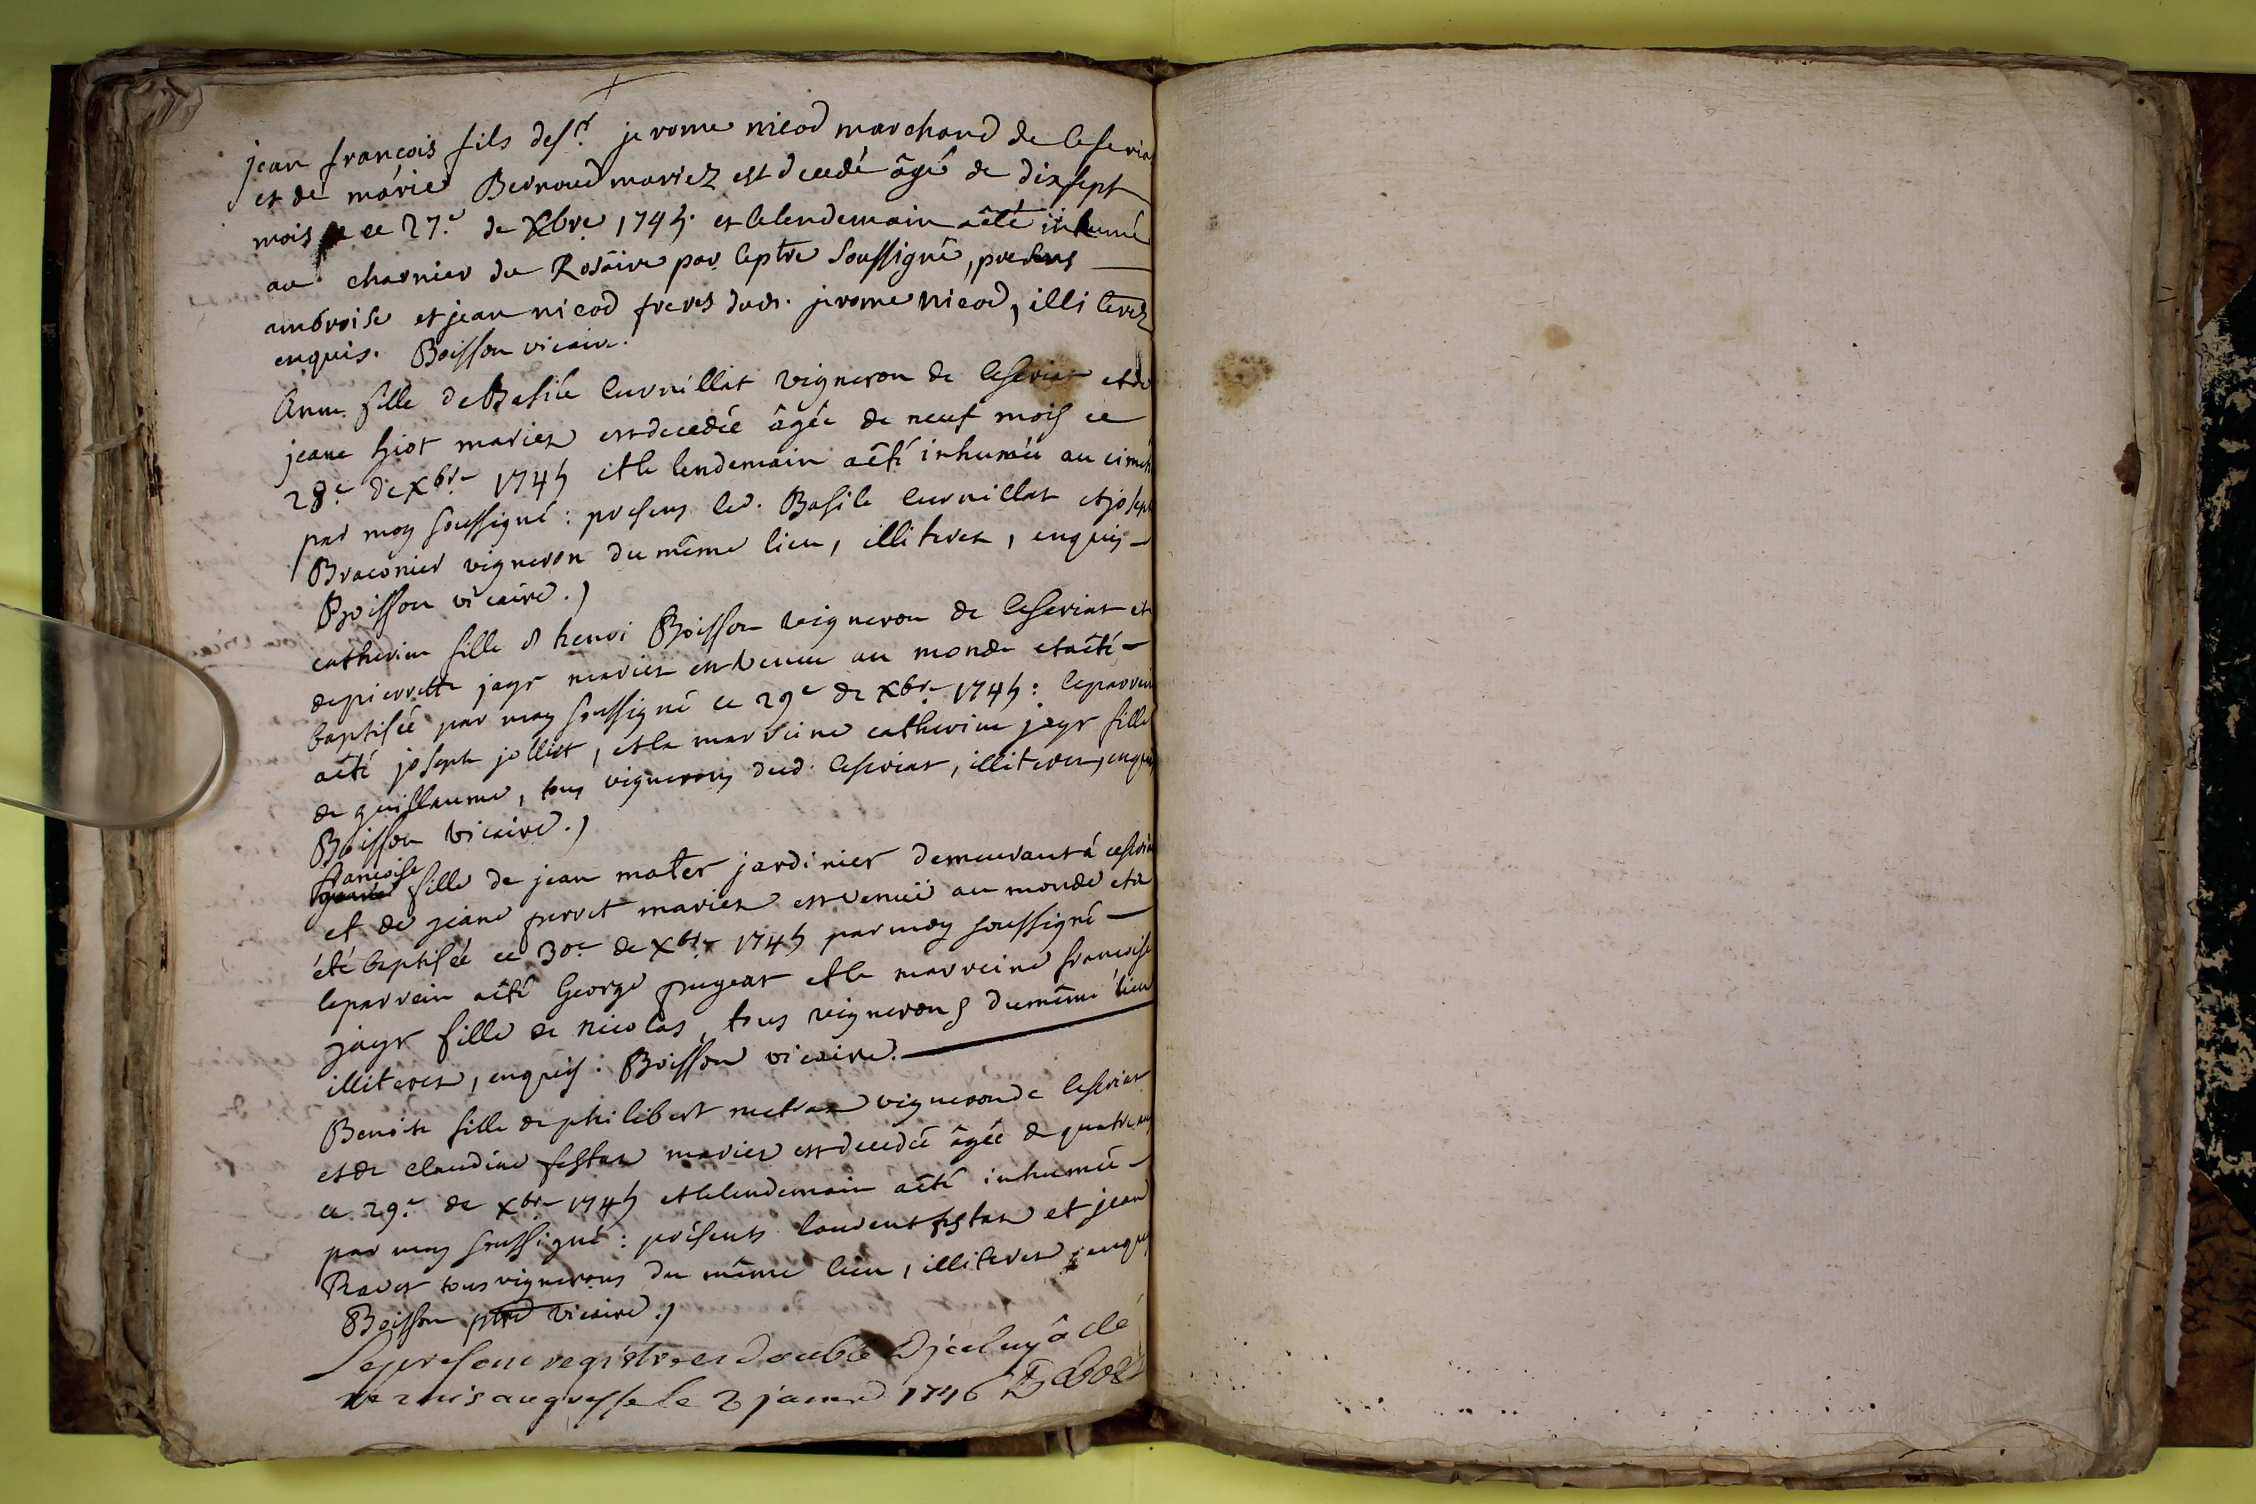 jean francois fils de s.r jerome nicod marchand de Ceseria
et de marie Bernoud mariez est decedé âgé de dix sept
mois ce 27.e de Xbre 1745. et le lendemain a êté inhumé
au charnier du Rosaire par le ptre soussigné, presens
ambroise et jean nicod freres dud. jerome nicod, illiterez
enquis. Boisson vicaire.
Anne fille de Basile Curnillat vigneron de Ceseriat et de
jeane hiot mariez est decedée âgée de neuf mois ce
28.e de Xbre 1745 et le lendemain a êté inhumée au
par moy soussigné : presens led. Basile Curnillat et joseph
Braconier vigneron du même lieu, illiterez, enquis
Boisson vicaire.)
catherine fille d henri Boisson vigneron de Ceseriat et
de pierrette jayr mariez est venue au monde et a êté
baptisée par moy soussigné ce 29e de Xbre 1745 : le parrein
a êté joseph jolliet, et la marreine catherine jayr fille
de guillaume, tous vignerons dud. Ceseriat, illiterez, enquis
Boisson vicaire.)
francoise
fille de jean mater jardinier demeurant á ceseria
et de jeane perret mariez est venuë au monde et a
été baptisée ce 30e de Xbre 1745 par moy soussigné
le parrein a êté George pugeat et la marreine francoise
jayr fille de nicolas, tous vignerons du même lieu
illiterez, enquis : Boisson vicaire.
Benoite fille de philibert metras vigneron de Ceseriat
et de claudine festas mariez est decedée âgée de quatre ans
ce 29.e de Xbre 1745 et le lendemain a êté inhumée
par moy soussigné : présents laurent festas et jean
Ravet tous vignerons du même lieu, illiterez enquis
Boisson vicaire.)
Le present registre et double d'jceluy a été
remis au greffe le 2 janvr 1746